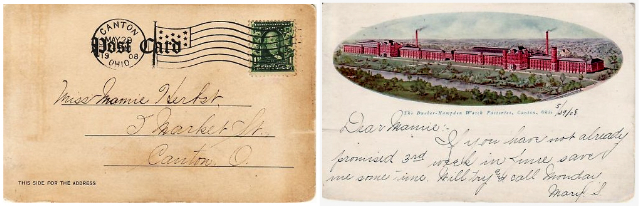 CANTON
MAY 29
1908
OHIO
Post Card
Miss Mamie Herbst
Market St.
Canton, O.
THIS SIDE FOR THE ADDRESS
The Dueber-Hampden Watch Factories, Canton, Ohio
5/29/08
Dear Mamie:-
If you have not already
promised 3rd week in June, save
me some time. Will try & call Monday
Mary S.